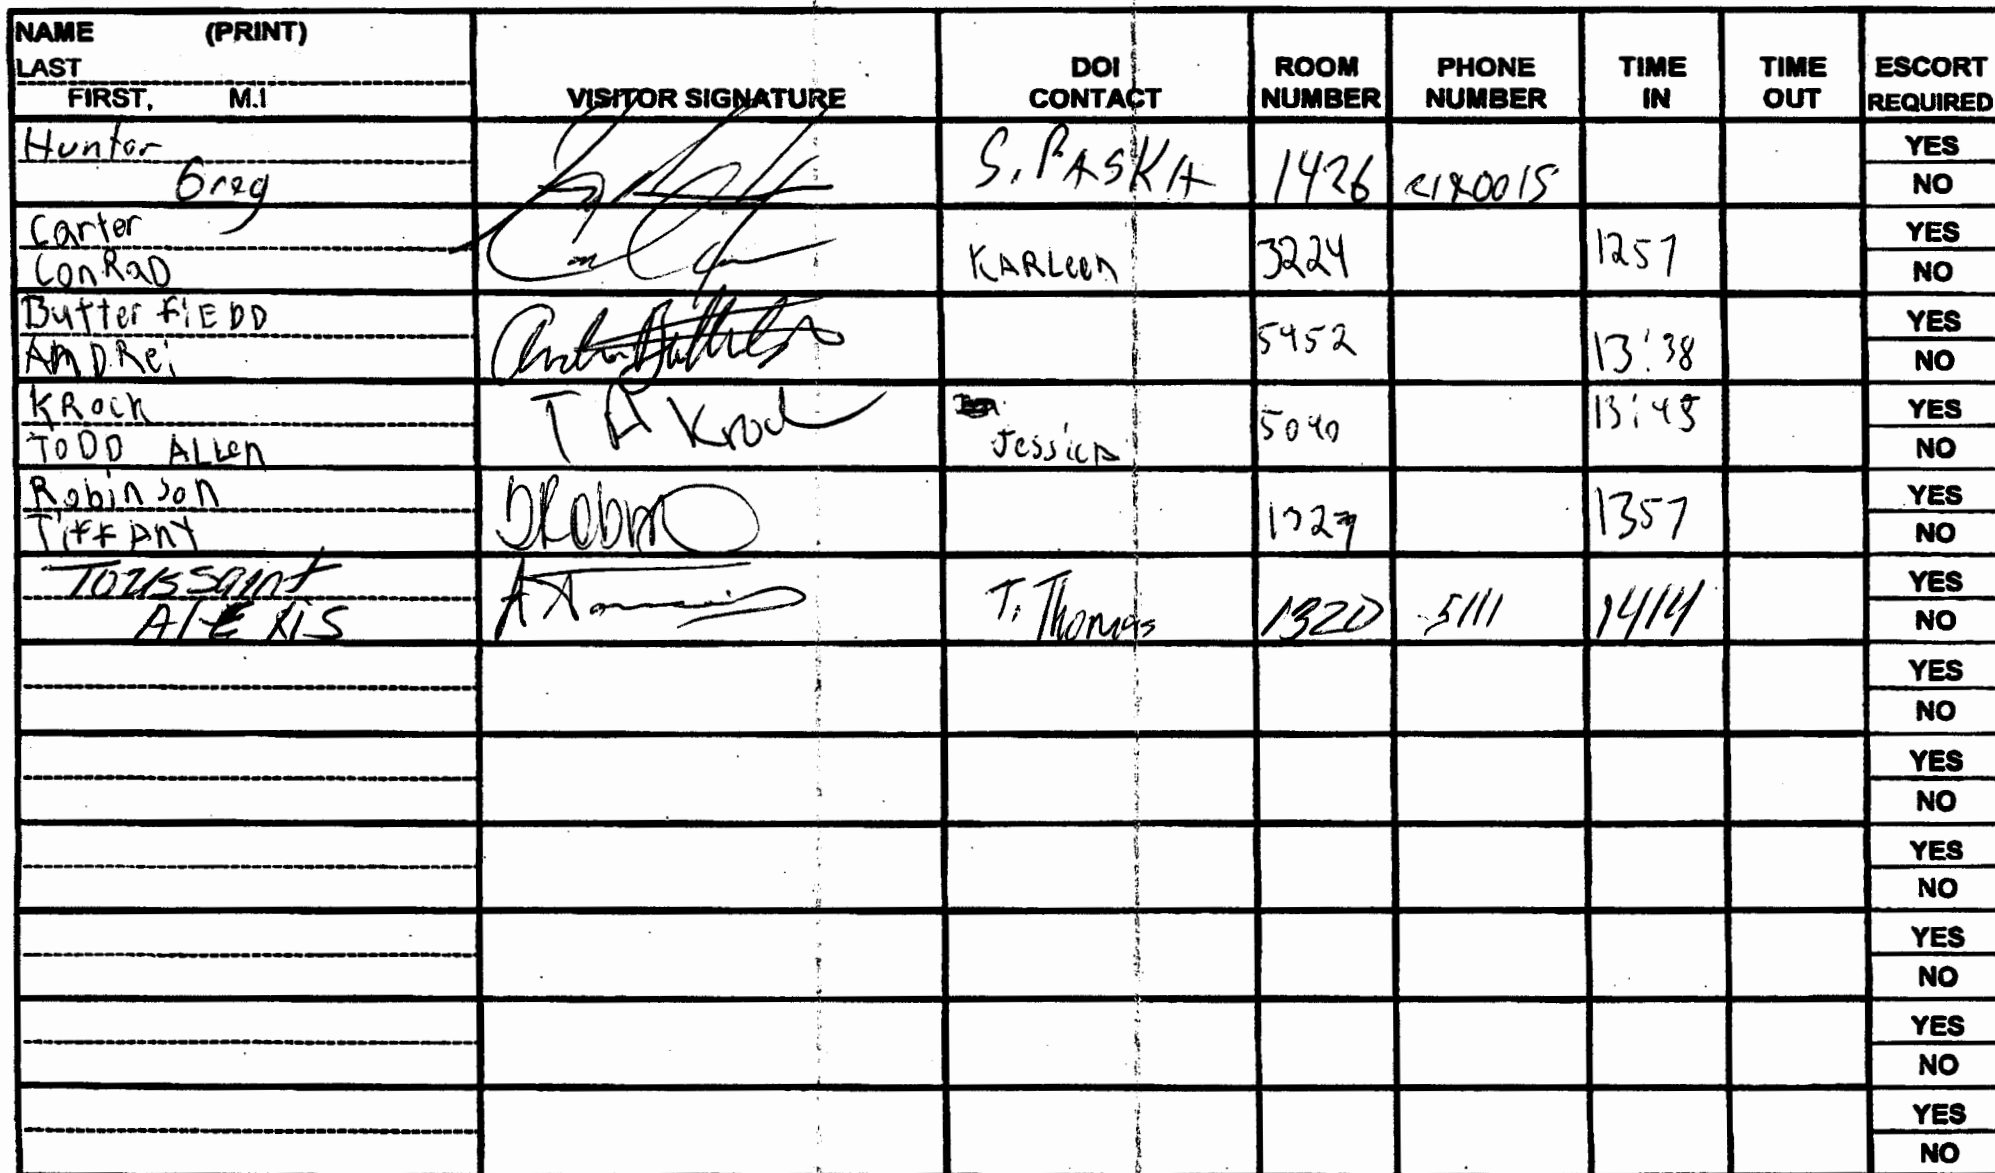 NAME (PRINT)
LAST
FIRST, M.I
VISITOR SIGNATURE
DOI CONTACT
ROOM NUMBER
PHONE NUMBER
TIME IN
TIME OUT
ESCORT REQUIRED
Hunter
Greg
S. PASKA 1426
YES
NO
Carter
ConRaD
KARLeen 3224 1257
YES
NO
ButterFiEDD
AnDRei
5452 13:38
YES
NO
KRock
ToDD ALLen
T A Krock
Jessica 5040 13:45
YES
NO
Robinson
TiffAnY
1357
YES
NO
Toussaint
AlEXIS
T. Thomas 1320 5111 1414
YES
NO
YES
NO
YES
NO
YES
NO
YES
NO
YES
NO
YES
NO